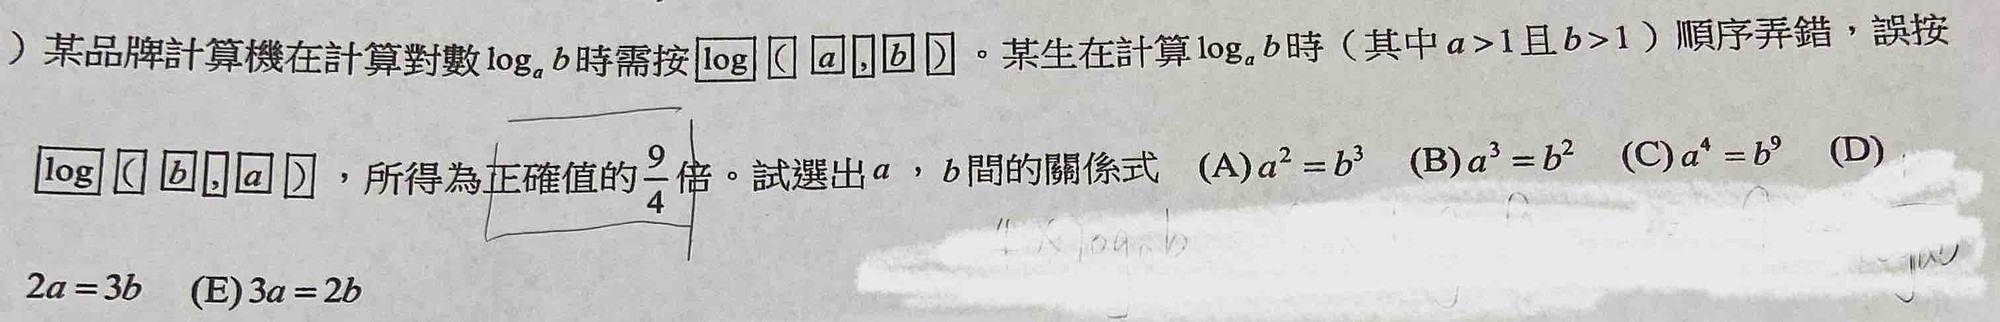 )某品牌計算機在計算對數 logₐ b 時需按 log ( a , b ) 。某生在計算 logₐ b 時(其中 a > 1 且 b > 1)順序弄錯,誤按
log ( b , a ) ,所得為正確值的 9/4 倍。試選出 a , b 間的關係式 (A) a² = b³ (B) a³ = b² (C) a⁴ = b⁹ (D)
2a = 3b (E) 3a = 2b